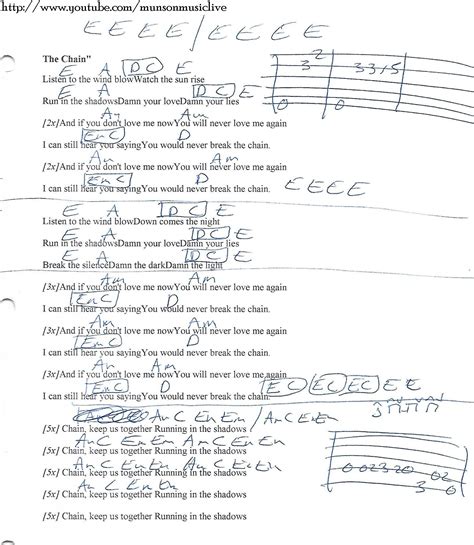 http://www.youtube.com/munsonmusiclive
E E E E / E E E E
The Chain"
E A D C E
Listen to the wind blowWatch the sun rise
E A D C E
Run in the shadowsDamn your loveDamn your lies
Am Am
[2x]And if you don't love me nowYou will never love me again
Em C D
I can still hear you sayingYou would never break the chain.
Am Am
[2x]And if you don't love me nowYou will never love me again
Em C D
I can still hear you sayingYou would never break the chain. E E E E
E A D C E
Listen to the wind blowDown comes the night
E A D C E
Run in the shadowsDamn your loveDamn your lies
E A D C E
Break the silenceDamn the darkDamn the light
Am Am
[3x]And if you don't love me nowYou will never love me again
Em C D
I can still hear you sayingYou would never break the chain.
Am Am
[3x]And if you don't love me nowYou will never love me again
Em C D
I can still hear you sayingYou would never break the chain.
Am Am
[3x]And if you don't love me nowYou will never love me again
Em C D E C E C E C E E
I can still hear you sayingYou would never break the chain.
Am C Em Em / Am C Em Em
[5x] Chain, keep us together Running in the shadows
Am C Em Em Am C Em Em
[5x] Chain, keep us together Running in the shadows
Am C Em Em / Am C Em Em
[5x] Chain, keep us together Running in the shadows
Am C Em Em
[5x] Chain, keep us together Running in the shadows
[5x] Chain, keep us together Running in the shadows